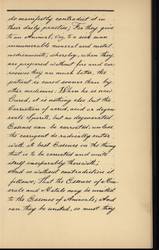 do manifestly contradict it in
their daily practice; For they give
to an Animal, Viz. to a sick man
innumerable mineral and metal
medicaments, whereby, when they
are prepared without fire and cor-
rosives they are much better, the
patient is cured sooner than by
other medicines. When he is now
Cured, it is nothing else but the
transition of acrid, and or degener-
ated Spirits, but no degenerated
Essence can be corrected unless
the corrigent do radically enter
with its best Essence in the thing
that is to be corrected and unite
itself inseparably therewith;
And so without contradiction it
follows, That the Essence of Min-
erals and Metals may be united
to the Essence of Animals; And
can they be united, so must they